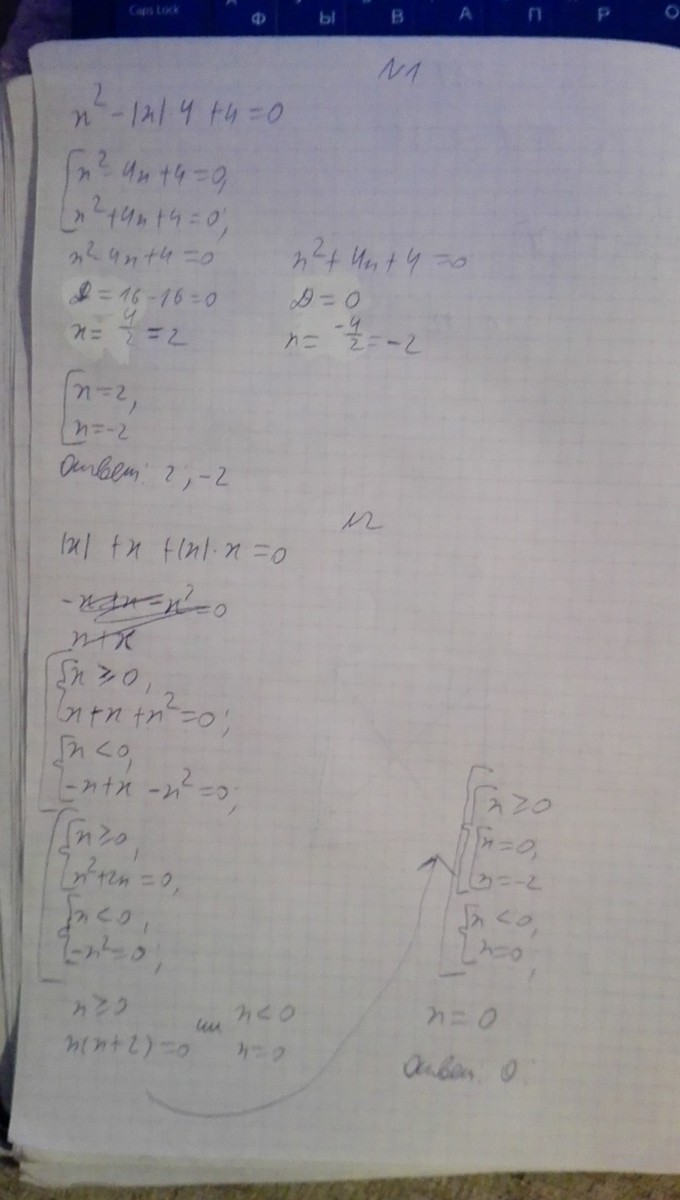 Caps Lock
Ф Ы В А П Р О
N1
x² - |x| 4 + 4 = 0
x² - 4x + 4 = 0,
x² + 4x + 4 = 0;
x² - 4x + 4 = 0
x² + 4x + 4 = 0
D = 16 - 16 = 0
D = 0
x = 4/2 = 2
x = -4/2 = -2
x = 2,
x = -2
Ответ: 2; -2
N2
|x| + x + |x| · x = 0
-x + x - x² = 0
x + x
x ≥ 0,
x + x + x² = 0;
x < 0,
-x + x - x² = 0;
x ≥ 0,
x² + 2x = 0,
x < 0,
-x² = 0;
x ≥ 0 или x < 0
x(x + 2) = 0 x = 0
x ≥ 0
x = 0,
x = -2
x < 0,
x = 0;
x = 0
Ответ: 0.